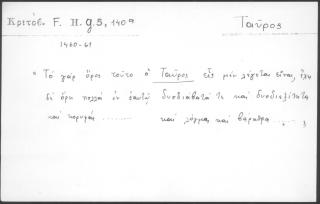 Κριτόβ. F. H. g 5, 140α
Ταῦρος
1460-61
" Τὸ γὰρ ὄρος τοῦτο ὁ Ταῦρος εἷς μὲν λέγεται εἶναι, ἔχει
δὲ ὄρη πολλὰ ἐν ἑαυτῷ δυσδιάβατά τε καὶ δυσδιεξίτητα
καὶ κορυφὰς ........ καὶ λόφους καὶ βάραθρα ....